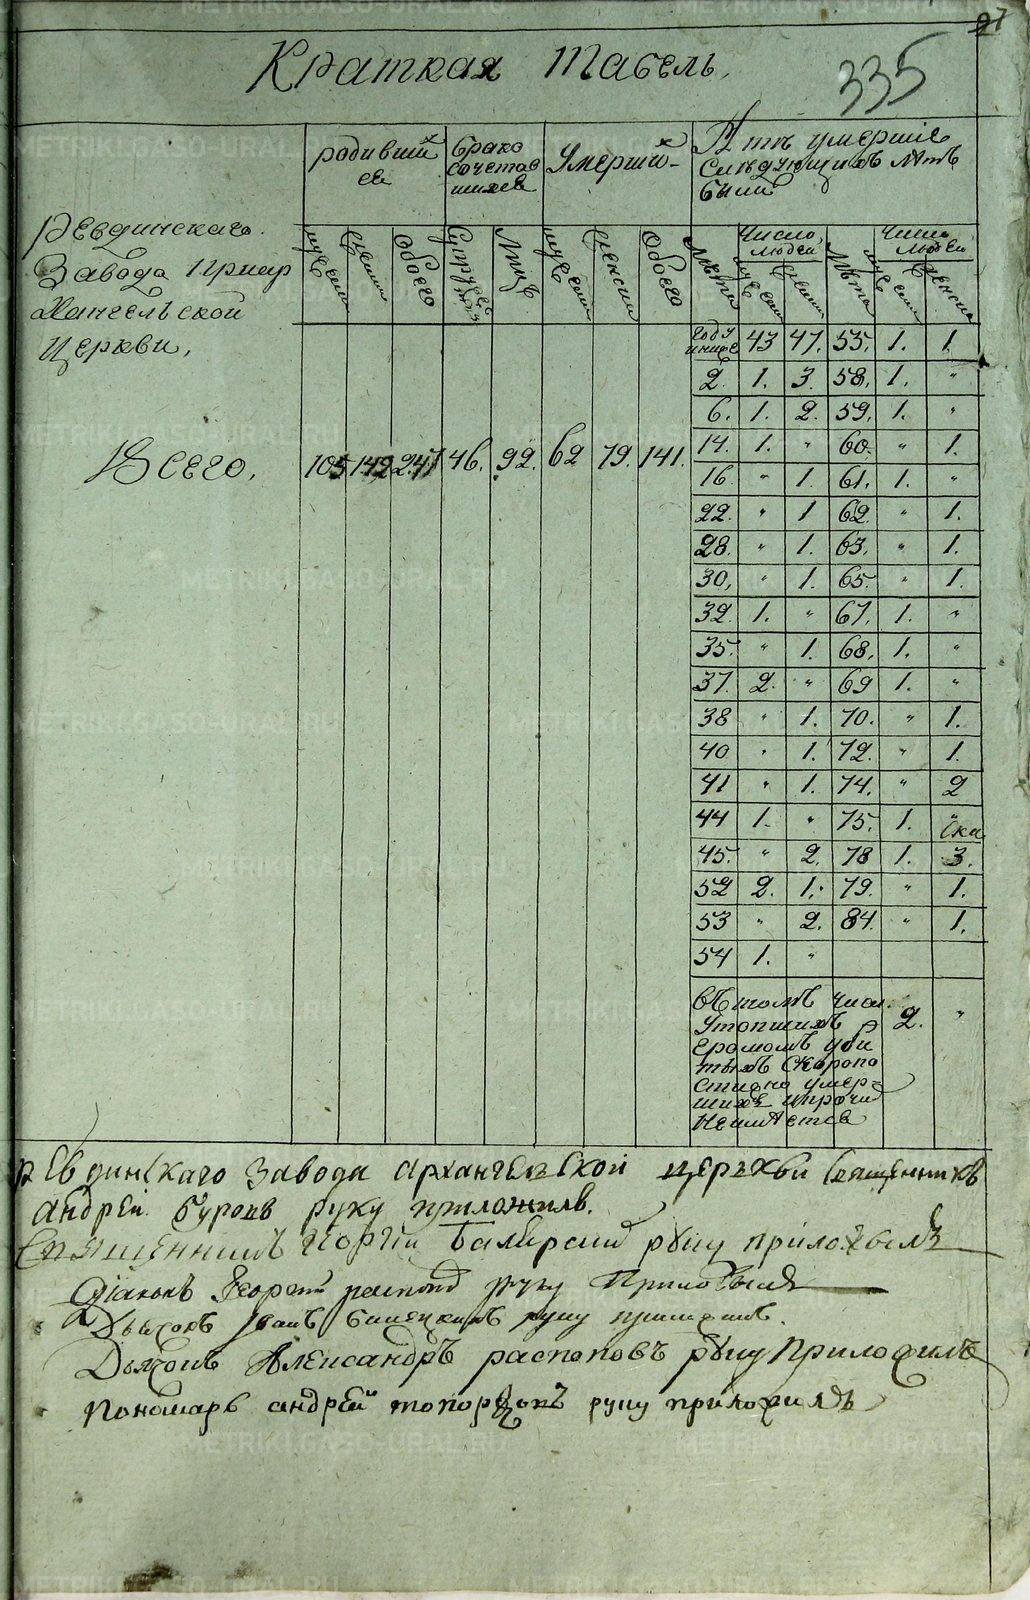 27
335
Краткая Табель.
родившихся
бракосочетавшихся
Умерших
А тѣ умершіе
слѣдующихъ лѣтъ
были
Ревдинскаго
Завода приАр
хангельской
Церкви,
мужеска
женска
Обоего
Супружествъ
Лицъ
мужеска
женска
Обоего
Лѣта
Число людей
мужеска
женска
Лѣта
Число людей
мужеска
женска
Всего, 105 142 247 46. 92. 62 79. 141.
году и ниже 43 47. 55. 1. 1.
2. 1. 3. 58. 1. "
6. 1. 2. 59. 1. "
14. 1. " 60. " 1.
16. " 1. 61. 1. "
22. " 1 62. " 1.
28. " 1. 63. " 1.
30. " 1. 65. " 1.
32. 1. " 67. 1. "
35. " 1. 68. 1. "
37. 2. " 69 1. "
38 " 1. 70. " 1.
40 " 1. 72. " 1.
41 " 1. 74. " 2
44 1. " 75. 1. "
45. " 2. 78 1. 3.
52 2. 1. 79. " 1.
53 " 2. 84. " 1.
54 1. "
въ томъ числѣ
Утопшихъ 2. "
громомъ уби
тыхъ Скоропо
стижно умер-
шихъ и прочих
Неимѣется
Ревдинскаго Завода Архангельской церкви священникъ
Андрей Буровъ руку приложилъ.
Священникъ Георгій руку приложилъ
Діаконъ Георгій руку Приложилъ
Дьячокъ Іванъ руку приложилъ.
Дьячокъ Александръ распоповъ руку Приложилъ
Пономарь андрей топорковъ руку приложилъ
METRIKI.GASO-URAL.RU